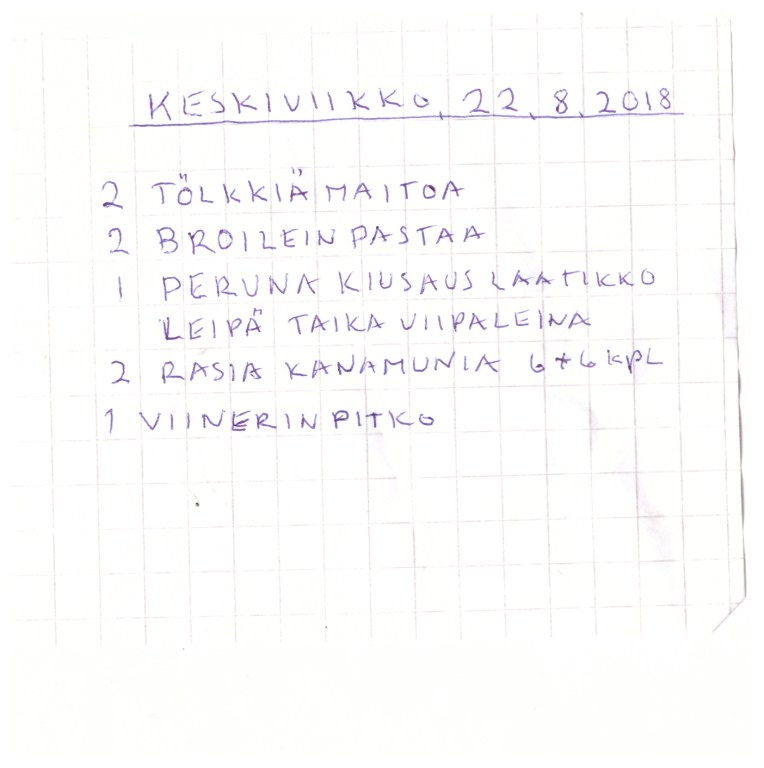 KESKIVIIKKO, 22.8.2018
2 TÖLKKIÄ MAITOA
2 BROILEIN PASTAA
1 PERUNA KIUSAUS LAATIKKO
LEIPÄ TAIKA VIIPALEINA
2 RASIA KANAMUNIA 6+6 KPL
1 VIINERIN PITKO